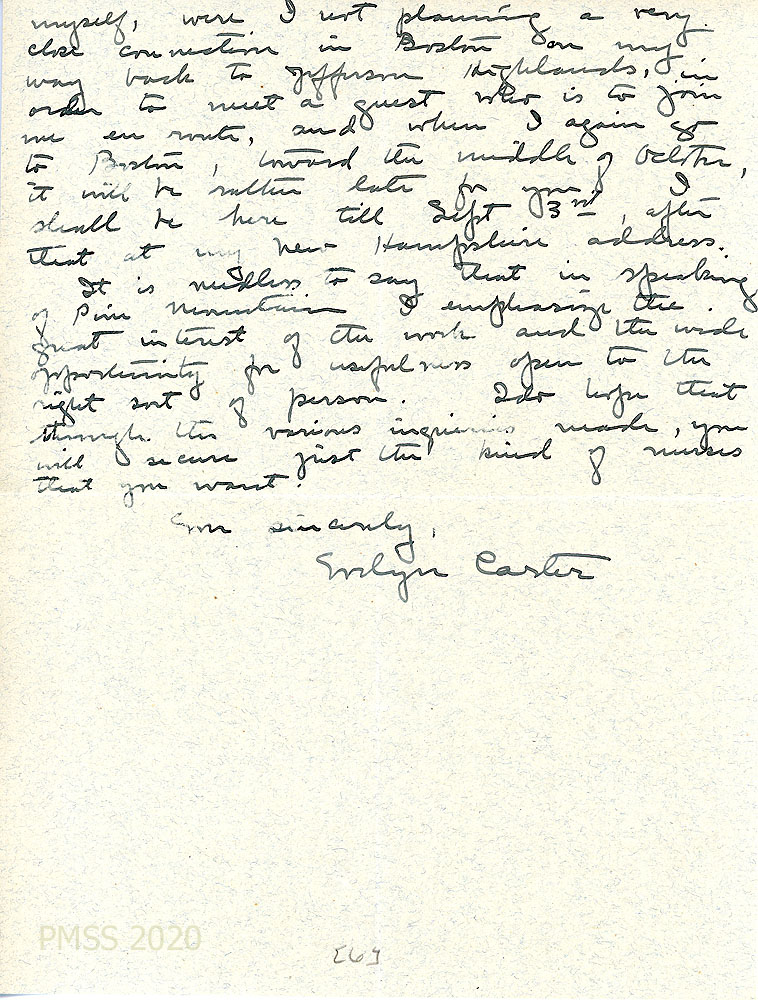 myself, were I not planning a very
close connection in Boston on my
way back to Jefferson Highlands, in
order to meet a guest who is to join
me en route, and when I again go
to Boston, toward the middle of October,
it will be rather late for you. I
shall be here till Sept 3rd, after
that at my New Hampshire address.
It is needless to say that in speaking
of Pine Mountain I emphasize the
great interest of the work and the wide
opportunity for usefulness open to the
right sort of person. I do hope that
through the various inquiries made, you
will secure just the kind of nurses
that you want.
Your sincerely,
Evelyn Carter
PMSS 2020
[6]